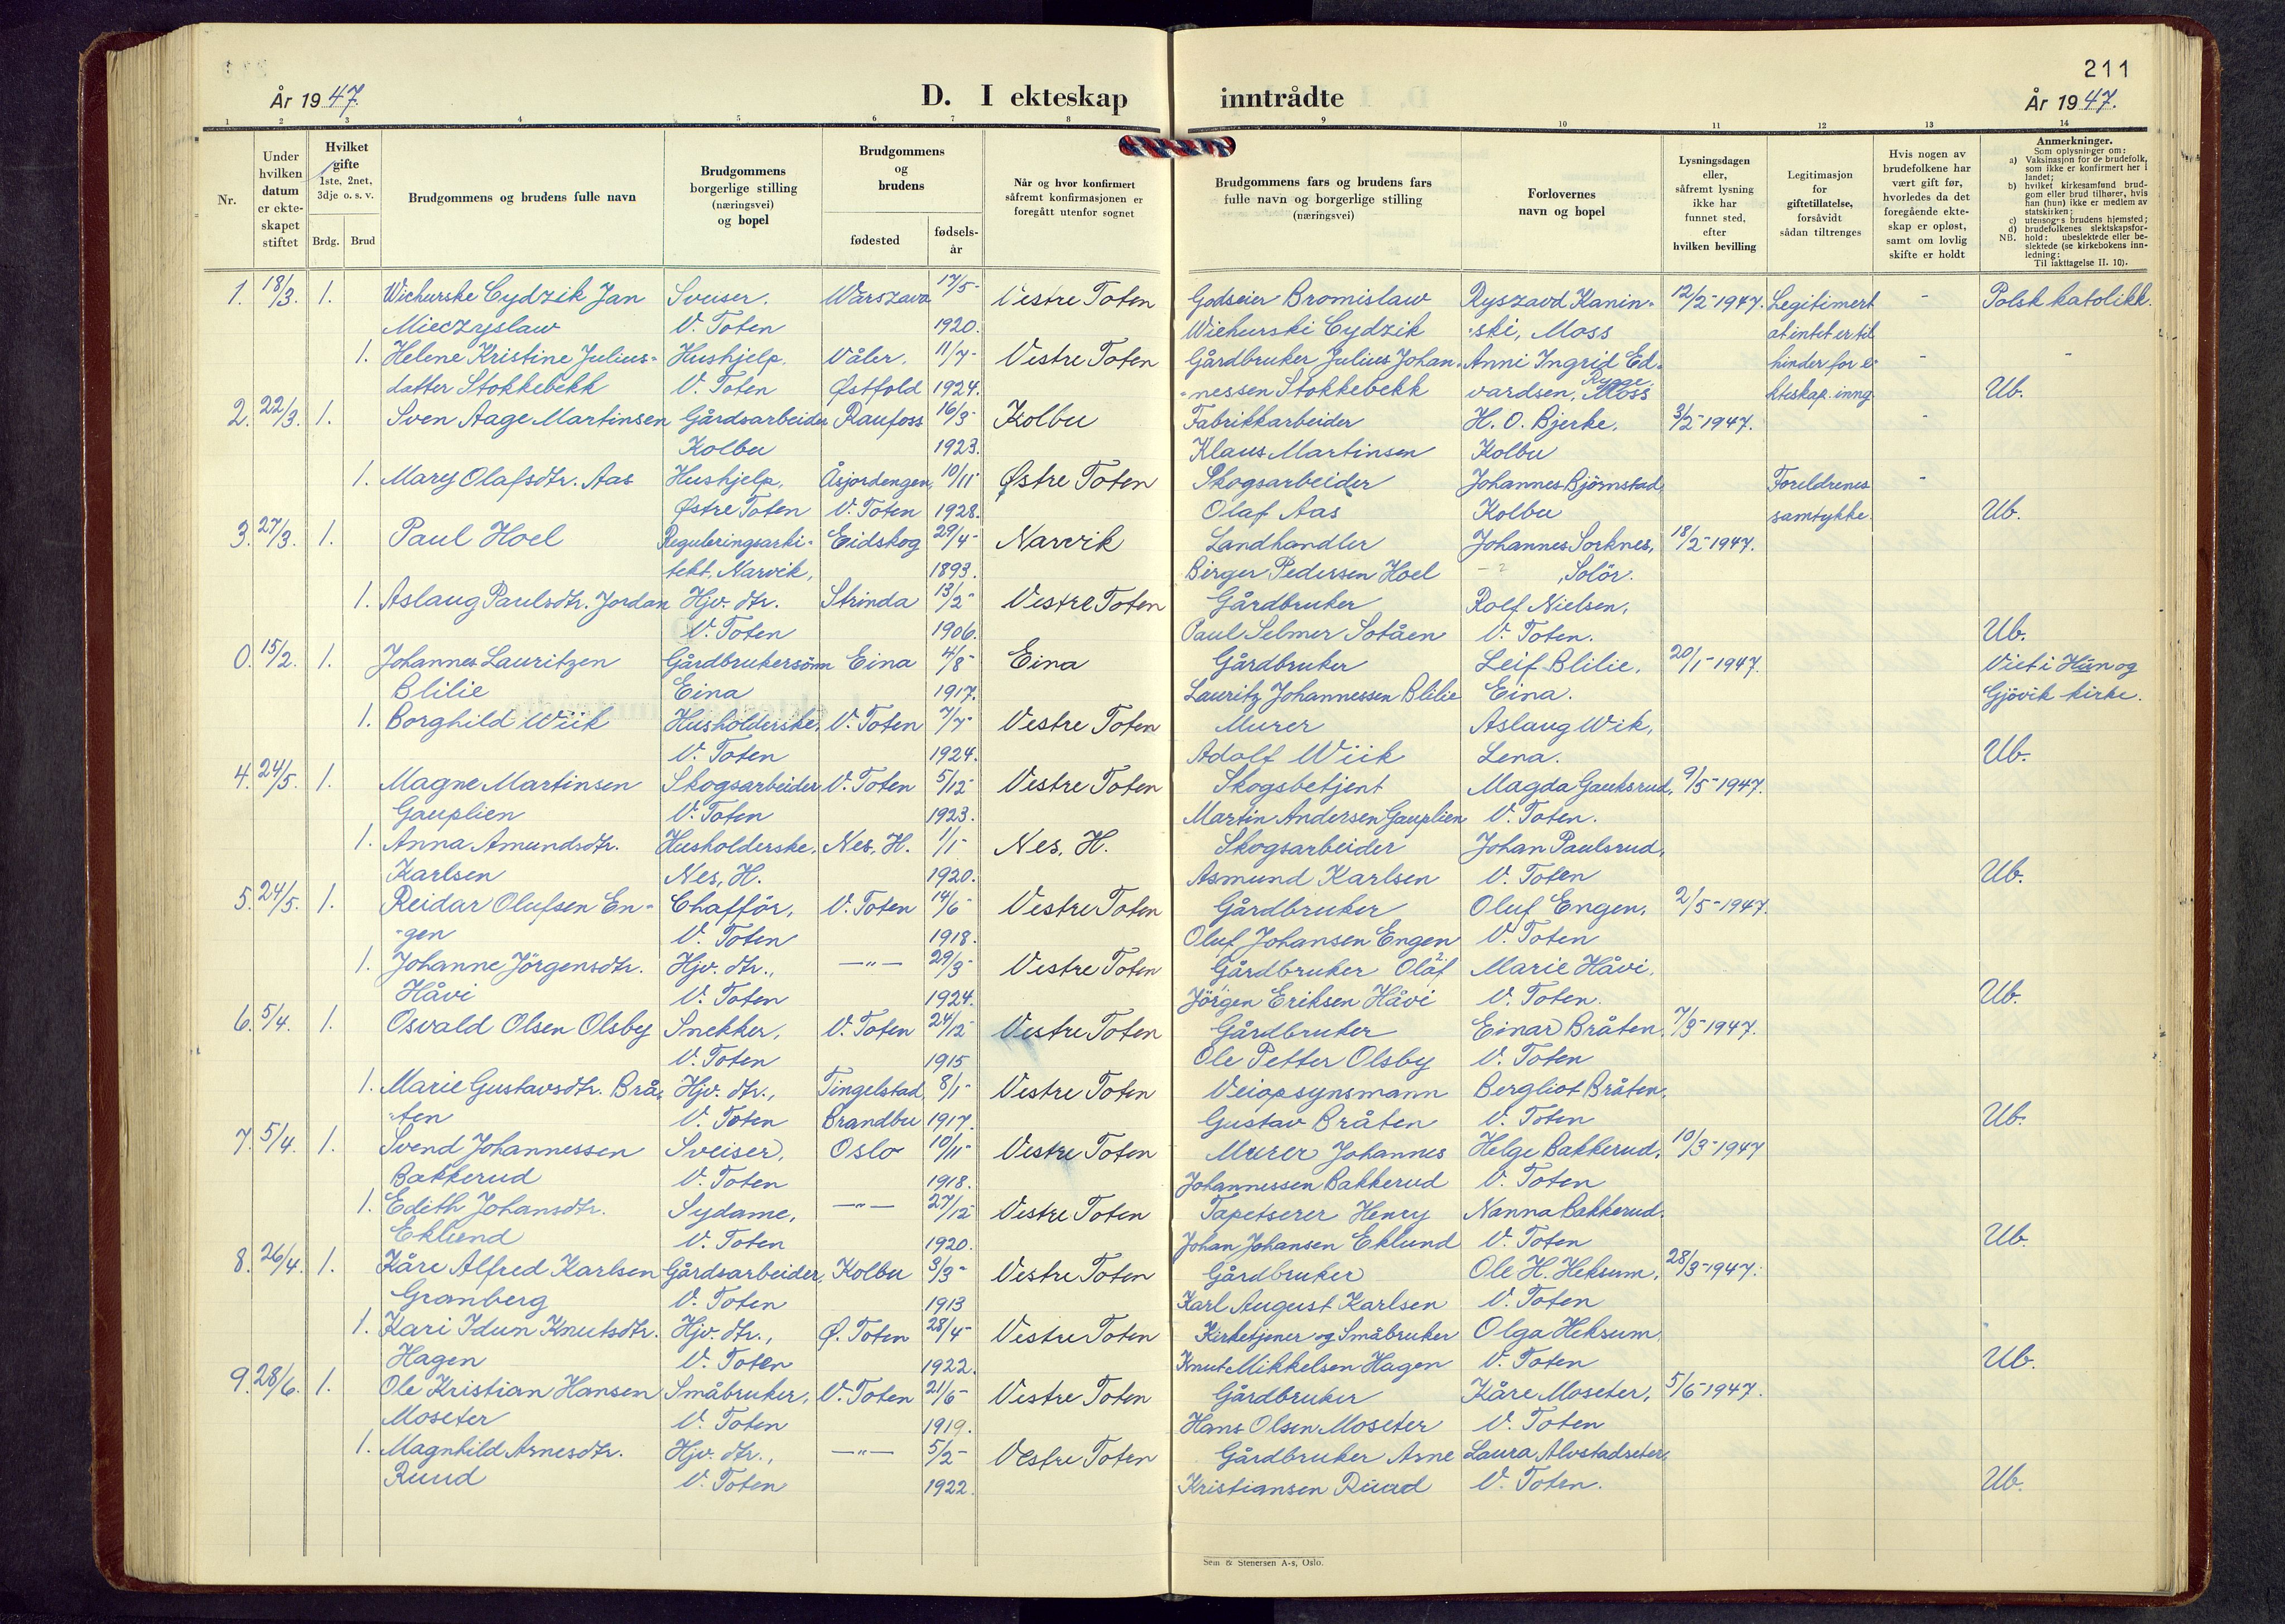 211
År 1947. D. I ekteskap inntrådte År 1947.
1 2 3 4 5 6 7 8 9 10 11 12 13 14
Nr.
Under hvilken datum er ekteskapet stiftet
Hvilket gifte 1ste, 2net, 3dje o. s. v.
Brdg. Brud
Brudgommens og brudens fulle navn
Brudgommens borgerlige stilling (næringsvei) og bopel
Brudgommens og brudens
fødested fødsels-år
Når og hvor konfirmert såfremt konfirmasjonen er foregått utenfor sognet
Brudgommens fars og brudens fars fulle navn og borgerlige stilling (næringsvei)
Forlovernes navn og bopel
Lysningsdagen eller, såfremt lysning ikke har funnet sted, efter hvilken bevilling
Legitimasjon for giftetillatelse, forsåvidt sådan tiltrenges
Hvis nogen av brudefolkene har vært gift før, hvorledes da det foregående ekteskap er opløst, samt om lovlig skifte er holdt
Anmerkninger.
Som oplysninger om:
a) Vaksinasjon for de brudefolk, som ikke er konfirmert her i landet;
b) hvilket kirkesamfund brudgom eller brud tilhører, hvis han (hun) ikke er medlem av statskirken;
c) utensogns brudens hjemsted;
d) brudefolkenes slektskapsforhold:
NB. ubeslektede eller beslektede (se kirkebokens innledning:
Til iakttagelse II. 10).
1. 18/3. 1. Wichurske Cydzik Jan Sveiser. Warszava 17/5- Vestre Toten Godseier Bromislaw Ryszavd Kanin- 12/2-1947. Legitimert - Polsk katolikk.
Mieczyslaw V. Toten 1920. Wichurski Cydzik -ski, Moss at intet er til
1. Helene Kristine Julius- Hushjelp. Våler. 11/7- Vestre Toten Gårdbruker Julius Johan- Anni Ingrid Ed- hinder for e- - -
datter Stokkebekk V. Toten Østfold 1924. -nessen Stokkebekk vardsen, Rygge Moss kteskap. inng. Ub.
2. 22/3. 1. Sven Aage Martinsen Gårdsarbeider Raufoss 16/3- Kolbu Fabrikkarbeider H. O. Bjerke, 3/2-1947. -
Kolbu 1923. Klaus Martinsen Kolbu
1. Mary Olafsdtr. Aas Hushjelp, Åsjordengen, 10/11- Østre Toten Skogsarbeider Johannes Björnstad, Foreldrenes -
Østre Toten V. Toten 1928. Olaf Aas Kolbu samtykke. Ub.
3. 27/3. 1. Paul Hoel Reguleringsarki- Eidskog 29/4- Narvik Landhandler Johannes Sorknes, 18/2-1947.
tekt, Narvik, 1893. Birger Pedersen Hoel , Solör.
1. Aslaug Paulsdtr. Jordan Hjv. dtr. Strinda 13/2- Vestre Toten Gårdbruker Rolf Nielsen,
V. Toten 1906. Paul Selmer Sotåen V. Toten. Ub.
0. 15/2. 1. Johannes Lauritzen Gårdbrukersönn Eina 4/8- Eina Gårdbruker Leif Blilie, 20/1-1947. Viet i Hunn og
Blilie Eina 1917. Lauritz Johannessen Blilie Eina. Gjövik kirke.
1. Borghild Wiik Husholderske, V. Toten 7/7- Vestre Toten Murer Aslaug Wik,
V. Toten 1924. Adolf Wiik Lena. Ub.
4. 24/5. 1. Magne Martinsen Skogsarbeider V. Toten 5/12- Vestre Toten Skogsbetjent Magda Gauksrud, 9/5-1947.
Gauplien V. Toten 1923. Martin Andersen Gauplien V. Toten.
1. Anna Amundsdtr. Husholderske, Nes, H. 1/1- Nes, H. Skogsarbeider Johan Paulsrud,
Karlsen Nes, H. 1920. Asmund Karlsen V. Toten Ub.
5. 24/5. 1. Reidar Olufsen En- Chafför, V. Toten 14/6- Vestre Toten Gårdbruker Oluf Engen, 2/5-1947.
-gen V. Toten 1918. Oluf Johansen Engen V. Toten
1. Johanne Jörgensdtr. Hjv. dtr., —"— 29/3- Vestre Toten Gårdbruker Olaf Marie Håvi,
Håvi V. Toten 1924. Jörgen Eriksen Håvi V. Toten. Ub.
6. 5/4. 1. Osvald Olsen Olsby Snekker, V. Toten 24/12- Vestre Toten Gårdbruker Einar Bråten, 7/3-1947.
V. Toten 1915 Ole Petter Olsby V. Toten
1. Marie Gustavsdtr. Brå- Hjv. dtr., Tingelstad, 8/1- Vestre Toten Veiopsynsmann Bergliot Bråten,
-ten V. Toten Brandbu 1917. Gustav Bråten V. Toten Ub.
7. 5/4. 1. Svend Johannessen Sveiser, Oslo 10/11- Vestre Toten Murer Johannes Helge Bakkerud, 10/3-1947
Bakkerud V. Toten 1918. Johannessen Bakkerud V. Toten
1. Edith Johansdtr. Sydame, —"— 27/12- Vestre Toten Tapetserer Henry Nanna Bakkerud.
Eklund V. Toten 1920. Johan Johansen Eklund V. Toten Ub.
8. 26/4. 1. Kåre Alfred Karlsen Gårdsarbeider, Kolbu 3/3- Vestre Toten Gårdbruker Ole H. Heksum, 28/3-1947.
Granberg V. Toten 1913 Karl August Karlsen V. Toten
1. Kari Idun Knutsdtr. Hjv. dtr., Ø. Toten 28/4- Vestre Toten Kirketjener og Småbruker Olga Heksum,
Hagen V. Toten 1922. Knut Mikkelsen Hagen V. Toten Ub.
9. 28/6. 1. Ole Kristian Hansen Småbruker, V. Toten 21/6- Vestre Toten Gårdbruker Kåre Moseter, 5/6-1947.
Moseter V. Toten 1919. Hans Olsen Moseter V. Toten
1. Magnhild Arnesdtr. Hjv. dtr., —"— 5/2- Vestre Toten Gårdbruker Arne Laura Alvstadseter,
Ruud V. Toten 1922. Kristiansen Ruud V. Toten. Ub.
Sem & Stenersen A-s, Oslo.